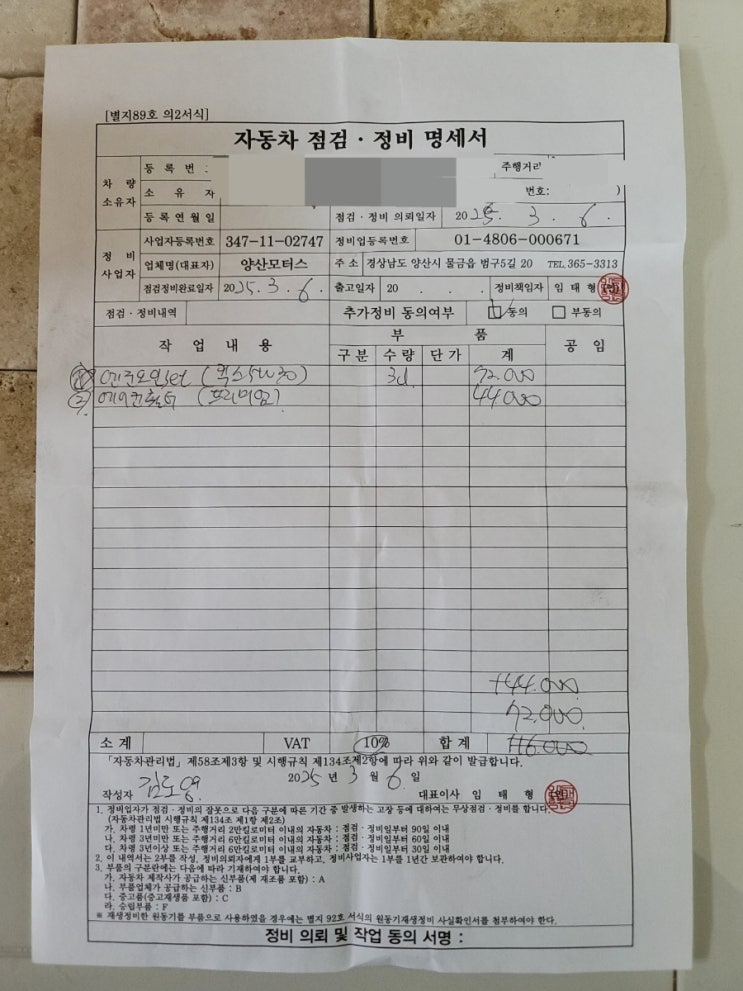 [별지89호 의2서식]
자동차 점검 · 정비 명세서
차 량 소유자
등 록 번 : 주행거리
소 유 자 번호: )
등록연월일 점검 · 정비 의뢰일자 2025. 3. 6.
정 비 사업자
사업자등록번호 347-11-02747 정비업등록번호 01-4806-000671
업체명(대표자) 양산모터스 주 소 경상남도 양산시 물금읍 범구5길 20 TEL.365-3313
점검정비완료일자 2025. 3. 6. 출고일자 20 . . . 정비책임자 임 태 형 (인)
점검 · 정비내역 추가정비 동의여부 동의 부동의
작 업 내 용 부 품 공 임
구 분 수 량 단 가 계
① 엔진오일set ( 5W30) 3d 72.000
② 에어컨필터 (프리미엄) 44.000
+44.000
72.000
소 계 VAT 10% 합 계 116.000
「자동차관리법」제58조제3항 및 시행규칙 제134조제2항에 따라 위와 같이 발급합니다.
2025 년 3 월 6 일
작성자 김도영 대표이사 임 태 형 (인)
1. 정비업자가 점검 · 정비의 잘못으로 다음 구분에 따른 기간 중 발생하는 고장 등에 대하여는 무상점검 · 정비를 합니다.
(자동차관리법 시행규칙 제134조 제1항 제2조)
가, 차령 1년미만 또는 주행거리 2만킬로미터 이내의 자동차 : 점검 · 정비일부터 90일 이내
나, 차령 3년미만 또는 주행거리 6만킬로미터 이내의 자동차 : 점검 · 정비일부터 60일 이내
다, 차령 3년이상 또는 주행거리 6만킬로미터 이내의 자동차 : 점검 · 정비일부터 30일 이내
2. 이 내역서는 2부를 작성, 정비의뢰자에게 1부를 교부하고, 정비사업자는 1부를 1년간 보관하여야 합니다.
3. 부품의 구분란에는 다음에 따라 기재하여야 합니다.
가. 자동차 제작사가 공급하는 신부품(제 재조품 포함) : A
나. 부품업체가 공급하는 신부품 : B
다. 중고품(중고재생품 포함) : C
라. 승입부품 : F
※ 재생정비한 원동기를 부품으로 사용하였을 경우에는 별지 92호 서식의 원동기재생정비 사실확인서를 첨부하여야 한다.
정비 의뢰 및 작업 동의 서명 :